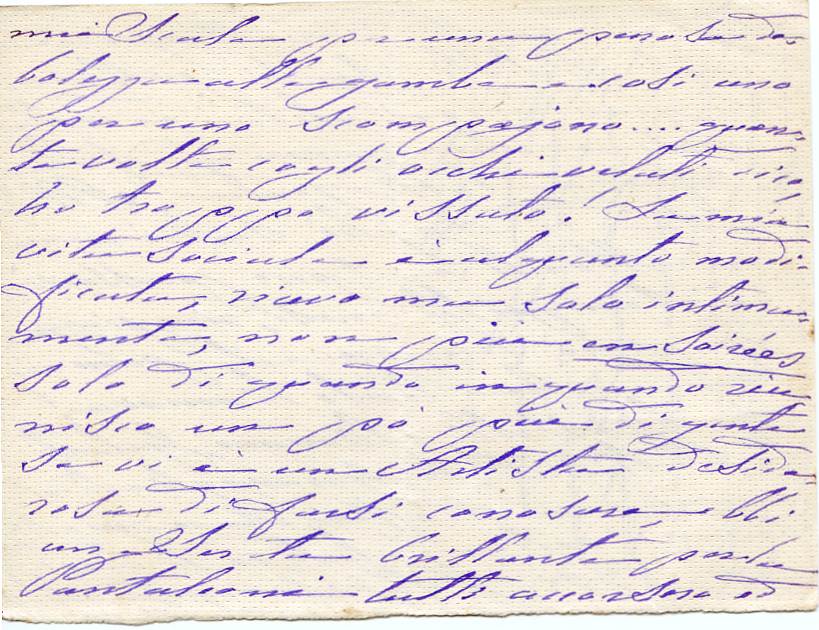 mie Scale per una penosa de-
bolezza alle gambe e così uno
per uno scompajono.... quan-
te volte cogli occhi velati dico,
ho troppo vissuto! La mia
vita sociale è alquanto modi-
ficata, ricevo ma solo intima-
mente, non più en soirées
solo di quando in quando riu
nisco un pò più di gente
se vi è un Artista deside-
roso di farsi conoscere, ebbi
una Serata brillante per la
Pantaleoni tutti accorsero ed